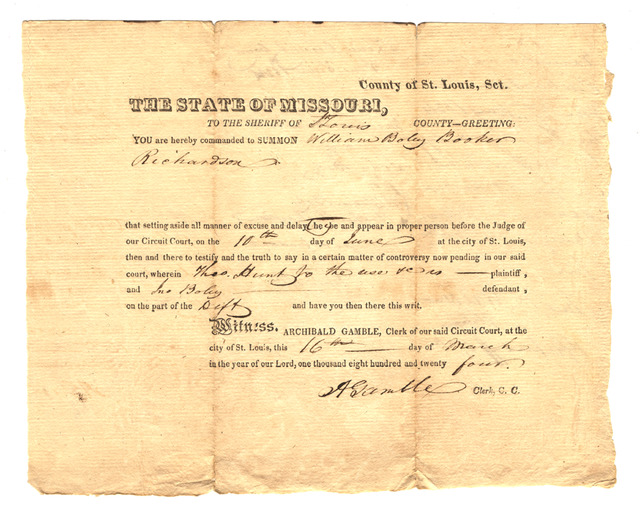 County of St. Louis, Sct.
THE STATE OF MISSOURI,
TO THE SHERIFF OF St Louis COUNTY—GREETING:
YOU are hereby commanded to SUMMON William Boley Booker
Richardson
that setting aside all manner of excuse and delay, they be and appear in proper person before the Judge of
our Circuit Court, on the 10th day of June at the city of St. Louis,
then and there to testify and the truth to say in a certain matter of controversy now pending in our said
court, wherein Theo. Hunt to the use &c is plaintiff,
and Jno Boley defendant,
on the part of the Deft and have you then there this writ.
Witness. ARCHIBALD GAMBLE, Clerk of our said Circuit Court, at the
city of St. Louis, this 16th day of March
in the year of our Lord, one thousand eight hundred and twenty four.
A Gamble Clerk, C. C.